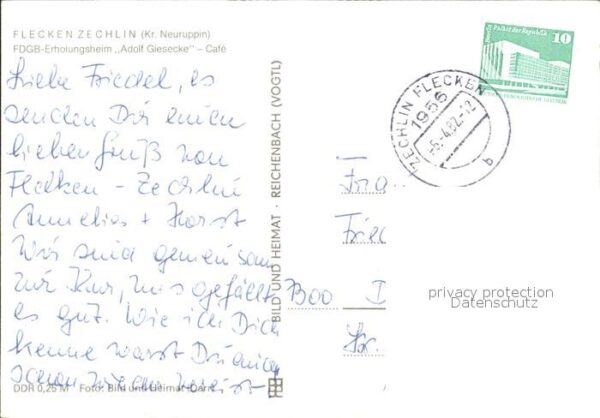 FLECKEN ZECHLIN (Kr. Neuruppin)
FDGB-Erholungsheim „Adolf Giesecke“ – Café
Liebe Friedel, es
senden Dir einen
lieben Gruß von
Flecken - Zechlin
Annelies + Horst
Wir sind gemeinsam
zur Kur, uns gefällt
es gut. Wie ich Dich
kenne warst Du
schon
DDR 0,25 M Foto: Bild und Heimat
BILD UND HEIMAT · REICHENBACH (VOGTL)
10
ZECHLIN FLECKEN
1956
-5.-4.82-12
b
Fra
Fried
I
privacy protection
Datenschutz